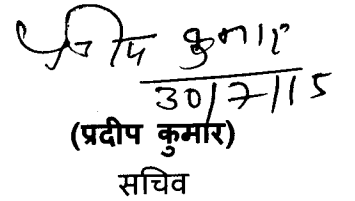 प्रदीप कुमार
30/7/15
(प्रदीप कुमार)
सचिव